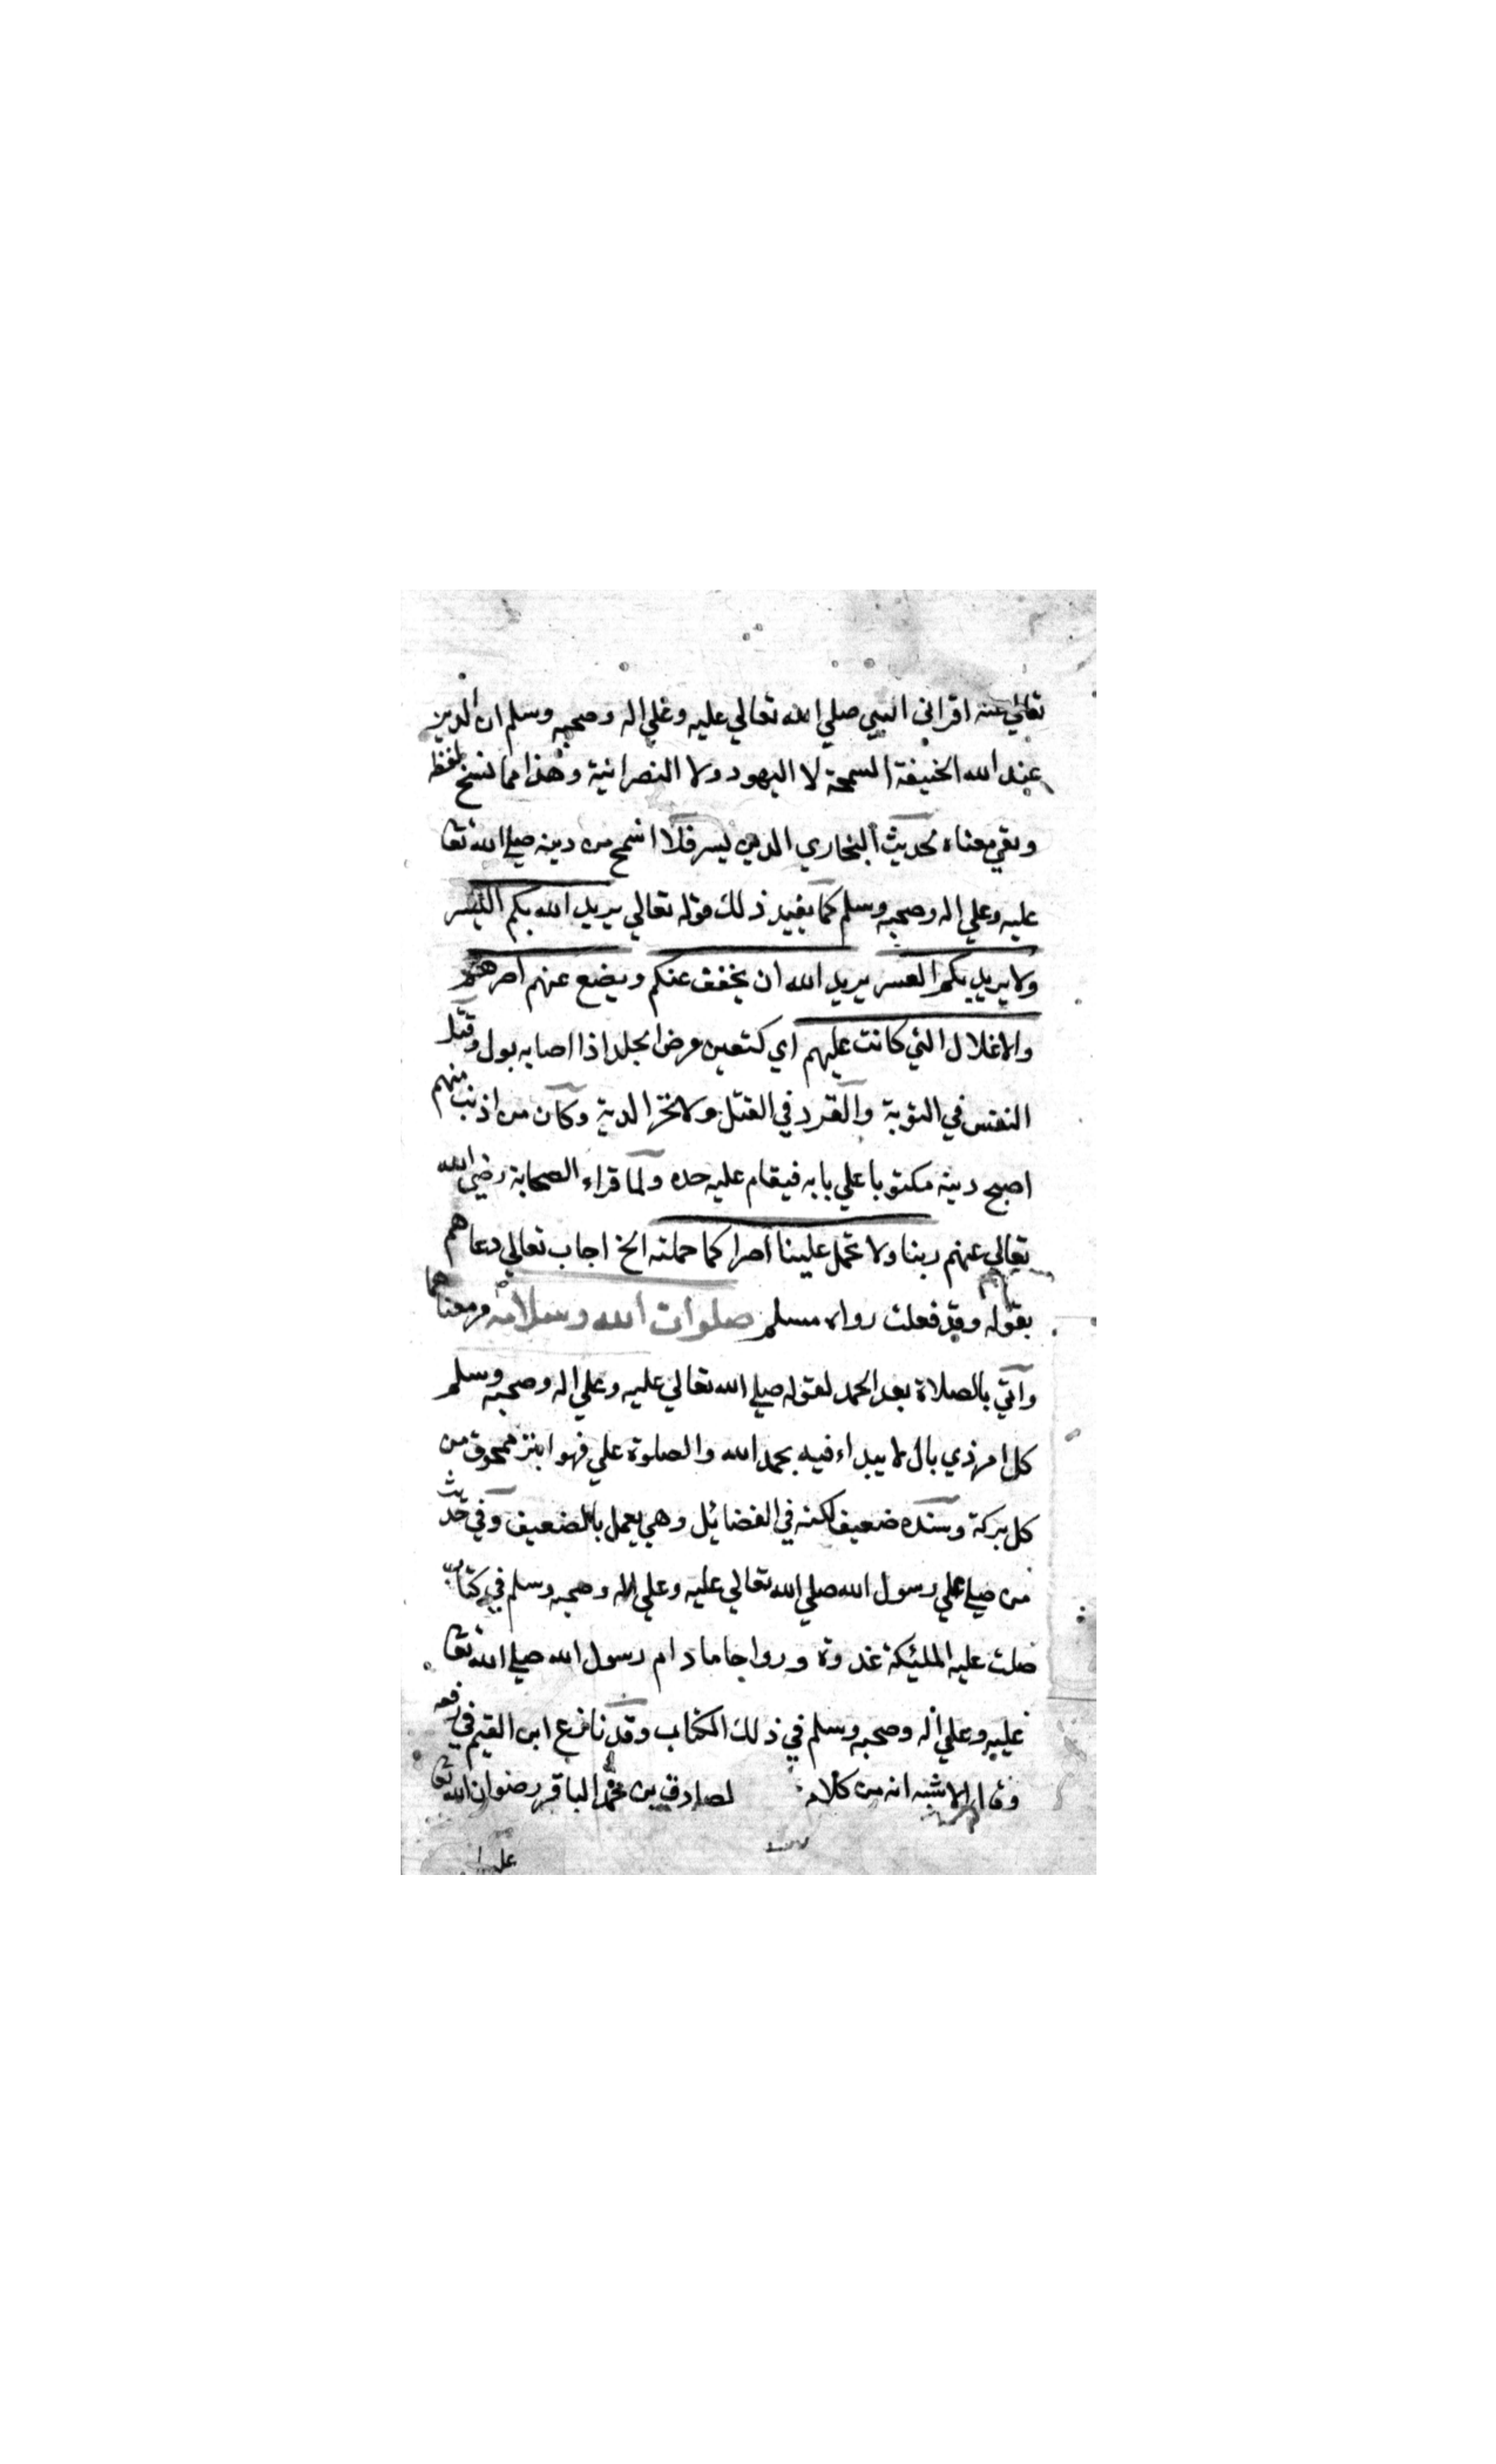 تعالي عنه اقراني النبي صلي الله تعالي عليه وعلي اله وصحبه وسلم ان الدين
عند الله الحنيفة السمحة لا اليهود ولا النصرانية وهذا مما نسخ لفظه
وبقي معناه لحديث البخاري الدين يسر فلا اسمح من دينه صلي الله تعا
عليه وعلي اله وصحبه وسلم كما يفيد ذلك قوله تعالي يريد الله بكم اليسر
ولا يريد بكم العسر يريد الله ان يخفف عنكم ويضع عنهم اصرهم
والاغلال التي كانت عليهم اي كتعين قرض الجلد اذا اصابه بول وقتل
النفس في التوبة والقود في القتل ولا تجز الدية وكان من اذنب منهم
اصبح دينه مكتوبا علي بابه فيقام عليه حده ولما قراء الصحابة رضي الله
تعالي عنهم ربنا ولا تحمل علينا اصرا كما حملته الخ اجاب تعالي دعاهم
بقوله وقد فعلت رواه مسلم صلوات الله وسلامه مر معناهما
واتي بالصلاة بعد الحمد لقوله صلي الله تعالي عليه وعلي اله وصحبه وسلم
كل امر ذي بال لا يبداء فيه بحمد الله والصلوة علي فهو ابتر ممحوق من
كل بركة وسنده ضعيف لكنه في الفضائل وهي يعمل بالضعيف وفي حديث
من صلي علي رسول الله صلي الله تعالي عليه وعلي اله وصحبه وسلم في كتاب
صلت عليه الملئكة غدوة ورواحا ما دام رسول الله صلي الله تعا
عليه وعلي اله وصحبه وسلم في ذلك الكتاب وقد نازع ابن القيم في رفعه
وقال الاشبه انه من كلام لصادق بن محمد الباقر رضوان الله تعا